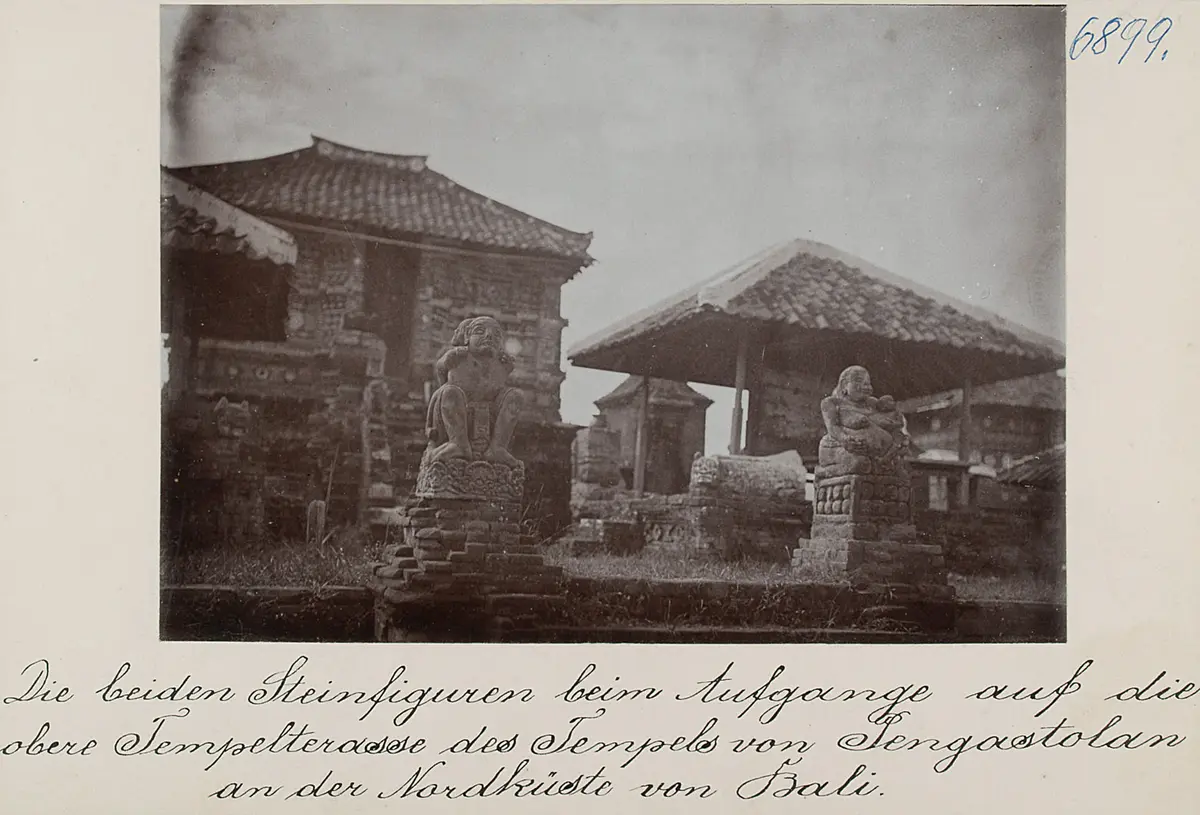 6899.
Die beiden Steinfiguren beim Aufgange auf die
obere Tempelterasse des Tempels von Pengastolan
an der Nordküste von Bali.